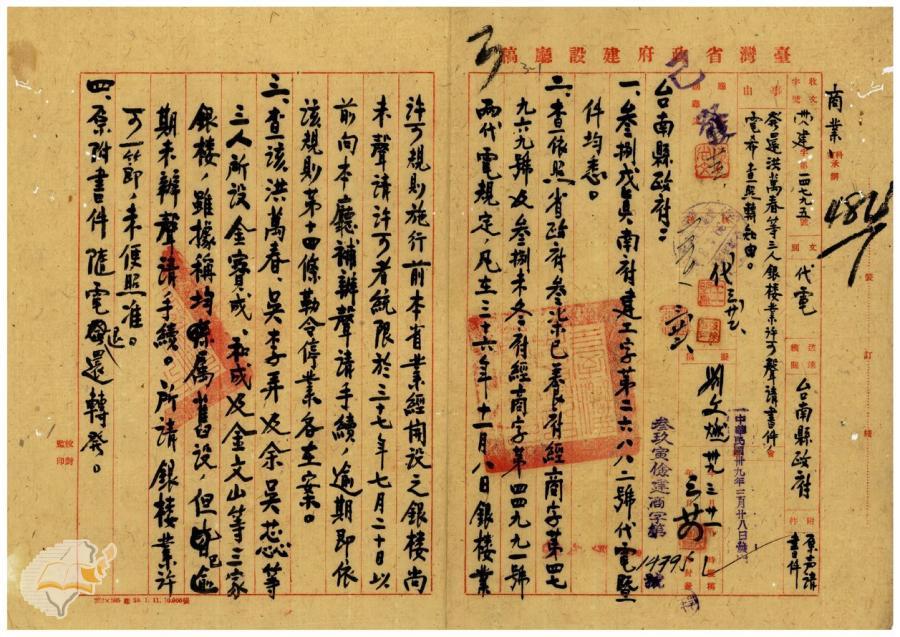 臺灣省政府建設廳稿
商業
484
收文
字號
建
一四七九五
號
文
代電
送達機關
台南縣政府
附件
原聲請書件
事由
發還洪萬春等三人銀樓業許可聲請書件
電希查照轉知由。
已發
代
中華民國卅九年三月廿八日
叁玖寅儉建商字第
14795
號
台南縣政府：
一、叁捌戊真南府建工字第二六八八二號代電暨
件均悉。
二、查依照省政府叁柒巳養府經商字第四七
九六九號及叁捌未冬府經商字第四四九九一號
兩代電規定，凡在三十六年十一月八日銀樓業
許可規則施行前本省業經開設之銀樓尚
未聲請許可者統限於三十七年七月二十日以
前向本廳補辦聲請手續，逾期即依
該規則第十四條勒令停業各在案。
三、查該洪萬春、吳李弄及余吳蕊等
三人所設金寶成、和成及金文山等三家
銀樓，雖據稱均屬舊設，但皆已逾
期未辦聲請手續。所請銀樓業許
可一節，未便照准。
四、原附書件隨電退還轉發。
裝
訂
線
校對
監印